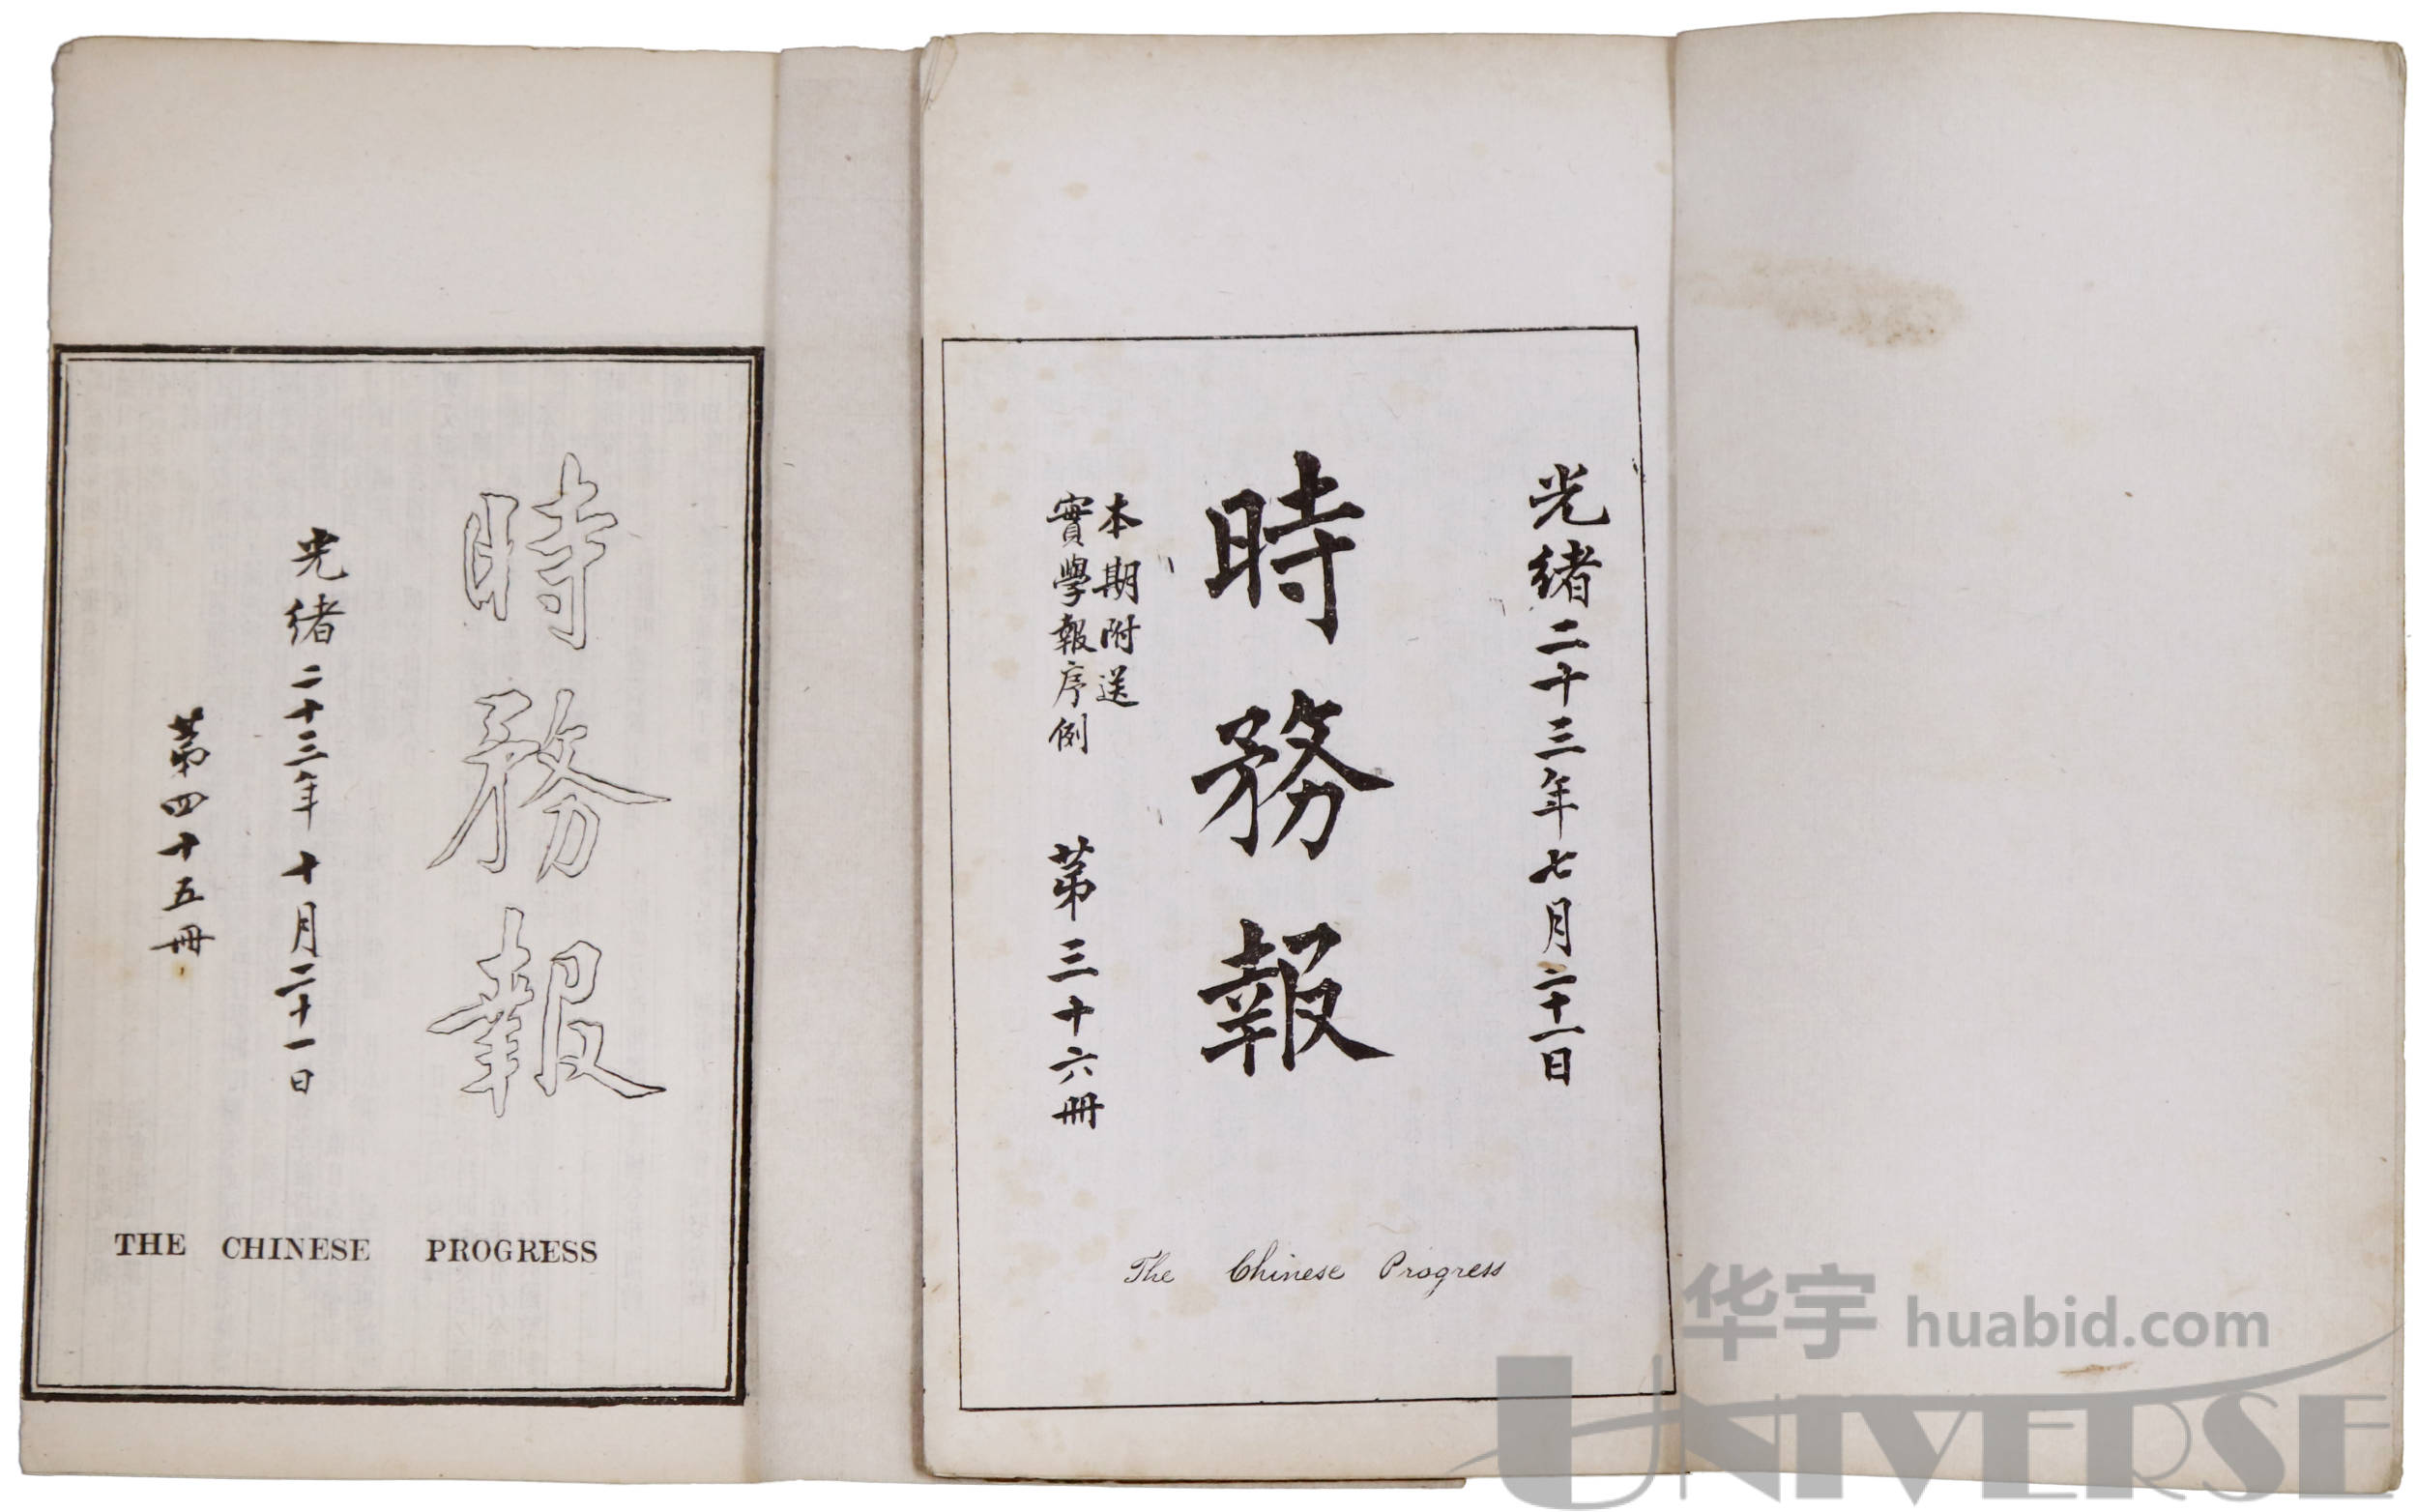 時務報
光緒二十三年十月二十一日
第四十五冊
THE CHINESE PROGRESS
光緒二十三年七月二十一日
時務報
本期附送
實學報序例
第三十六冊
The Chinese Progress
华宇 huabid.com
UNIVERSE